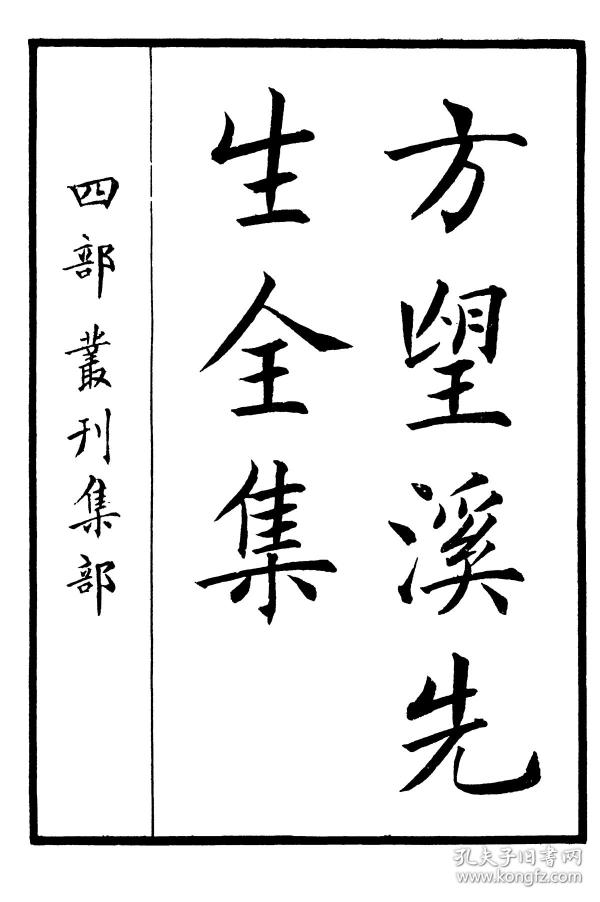 方望溪先
生全集
四部叢刊集部
孔夫子旧书网
www.kongfz.com